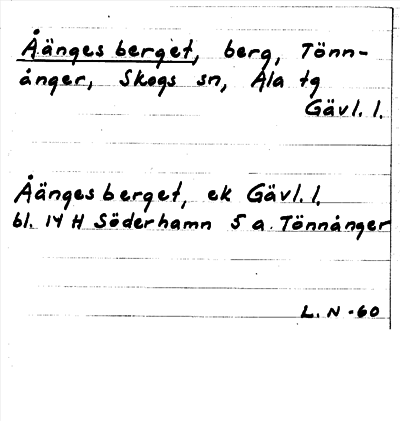 Åängesberget, berg, Tönn-
ånger, Skogs sn, Ala tg
Gävl. l.
Åängesberget, ek Gävl. l.
bl. 14 H Söderhamn 5 a. Tönnånger
L. N -60